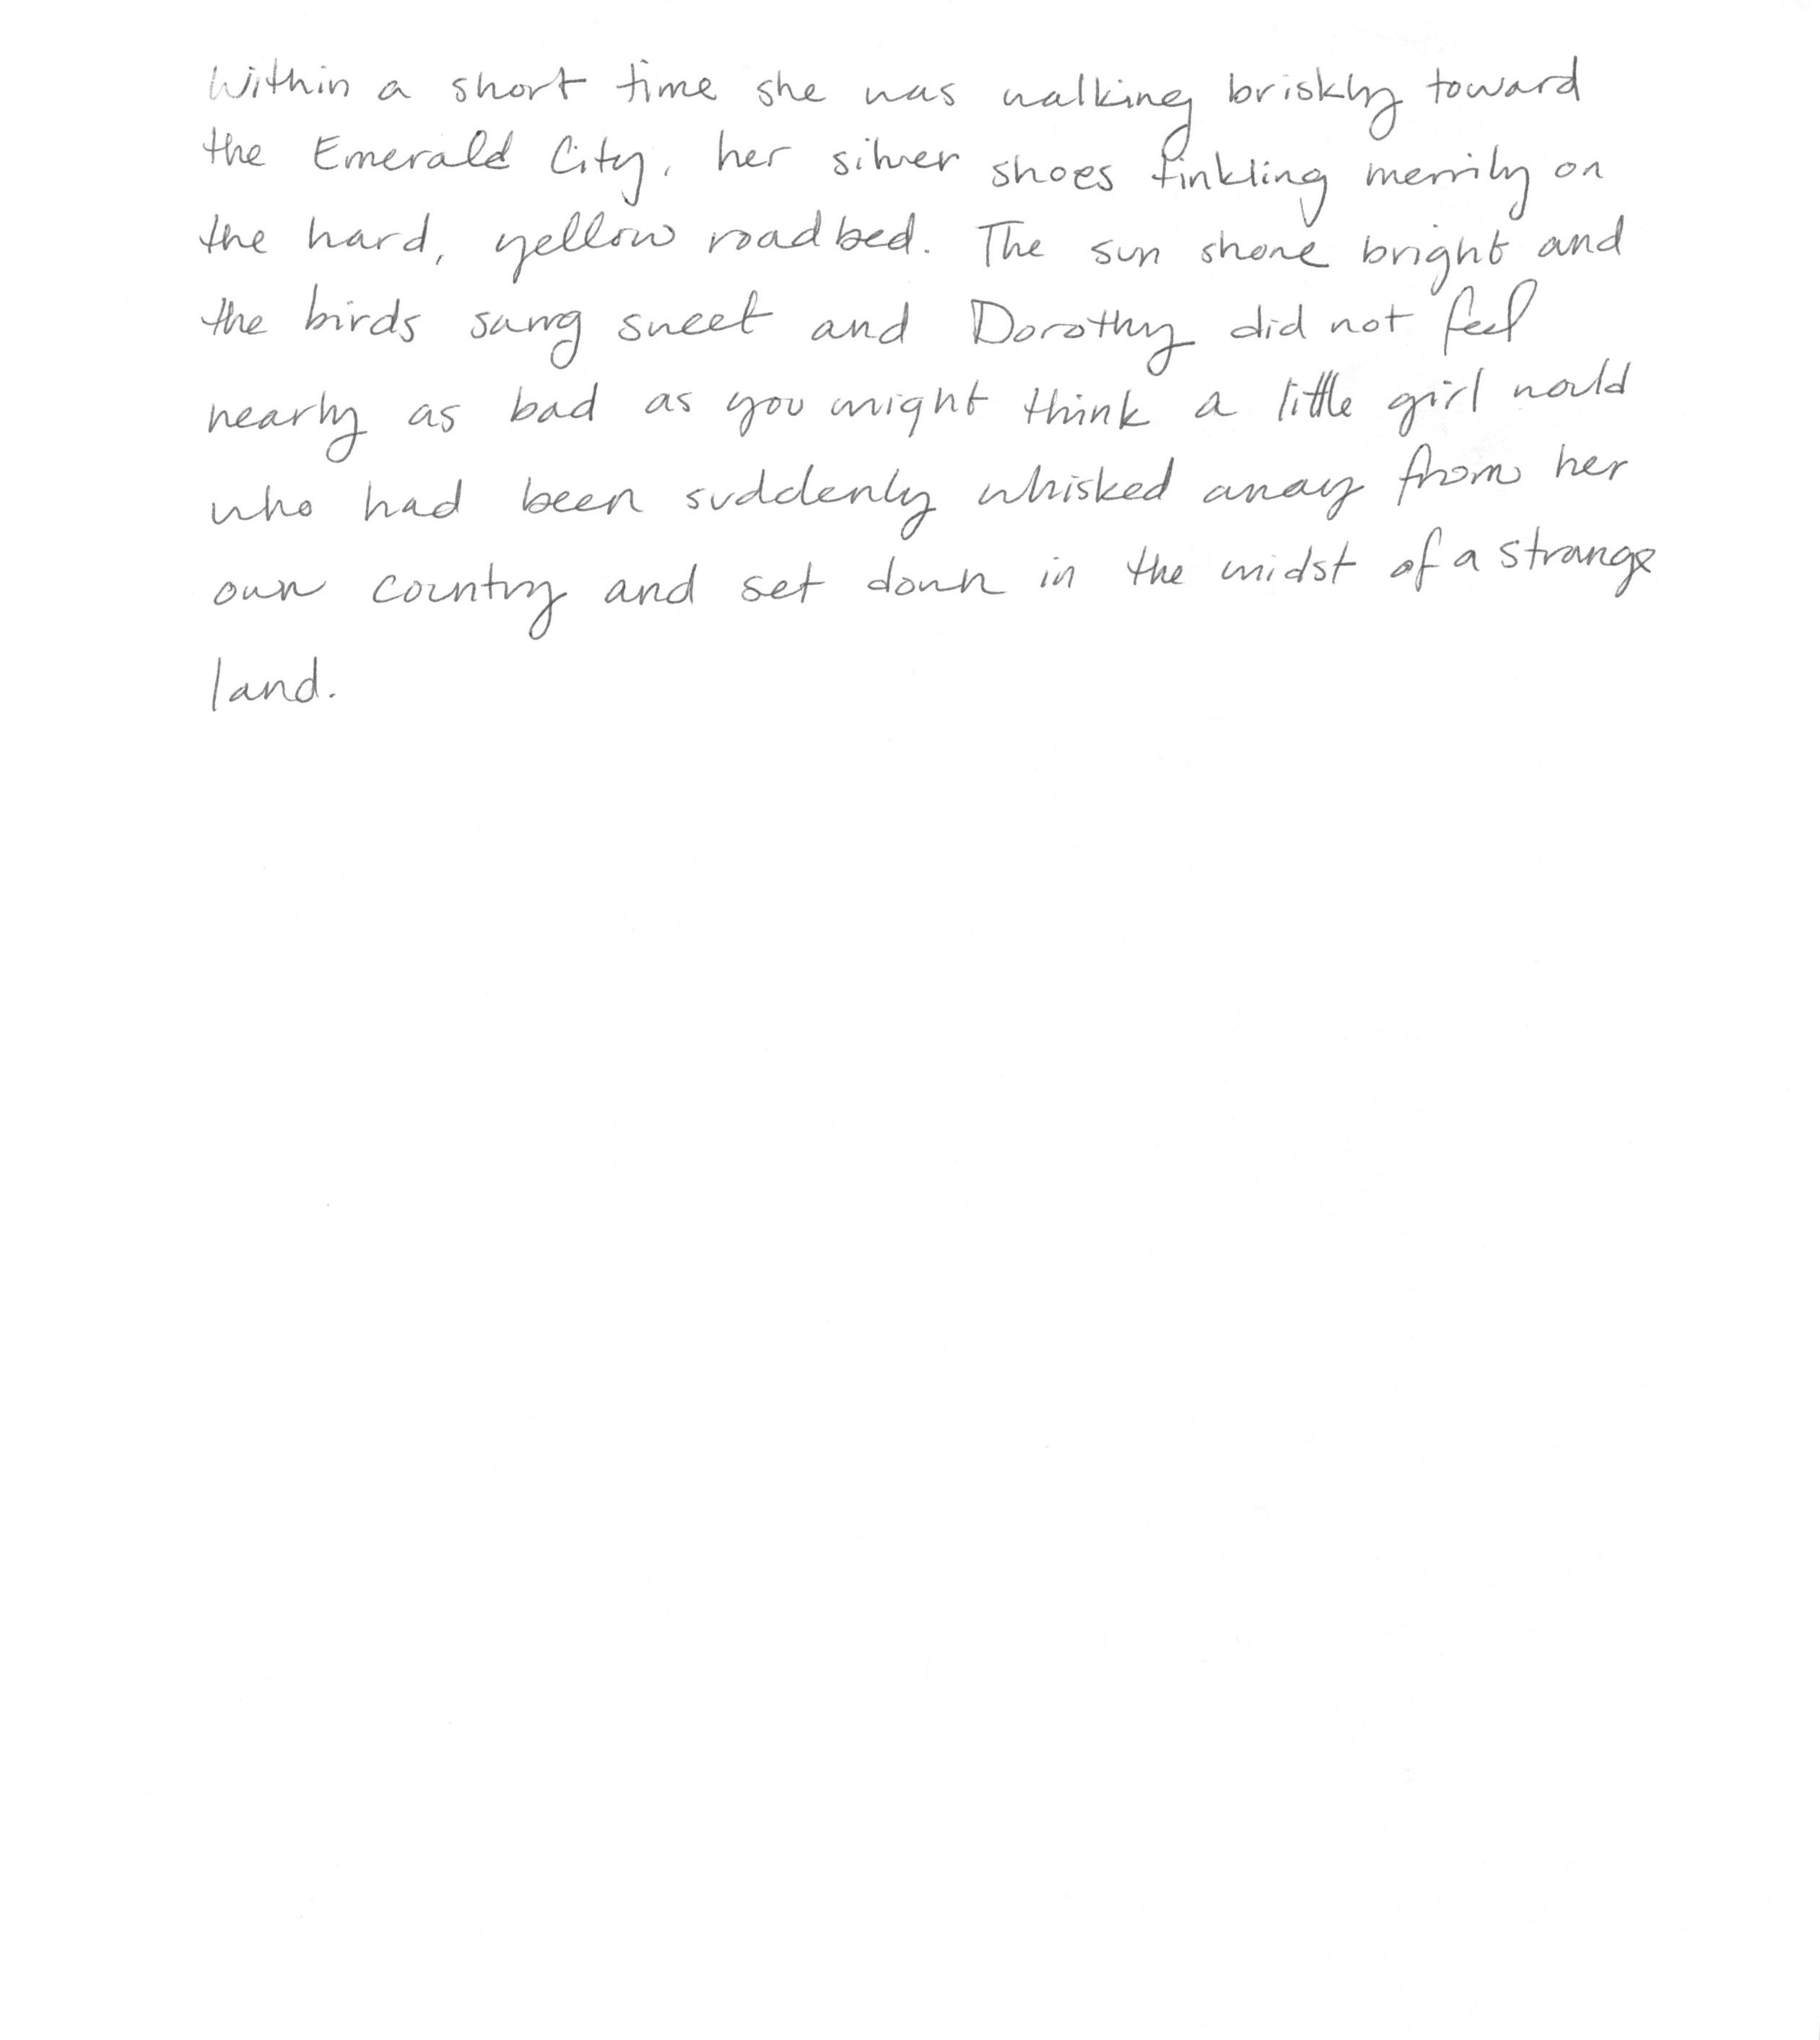 Within a short time she was walking briskly toward
the Emerald City, her silver shoes tinkling merrily on
the hard, yellow roadbed. The sun shone bright and
the birds sang sweet and Dorothy did not feel
nearly as bad as you might think a little girl would
who had been suddenly whisked away from her
own country and set down in the midst of a strange
land.